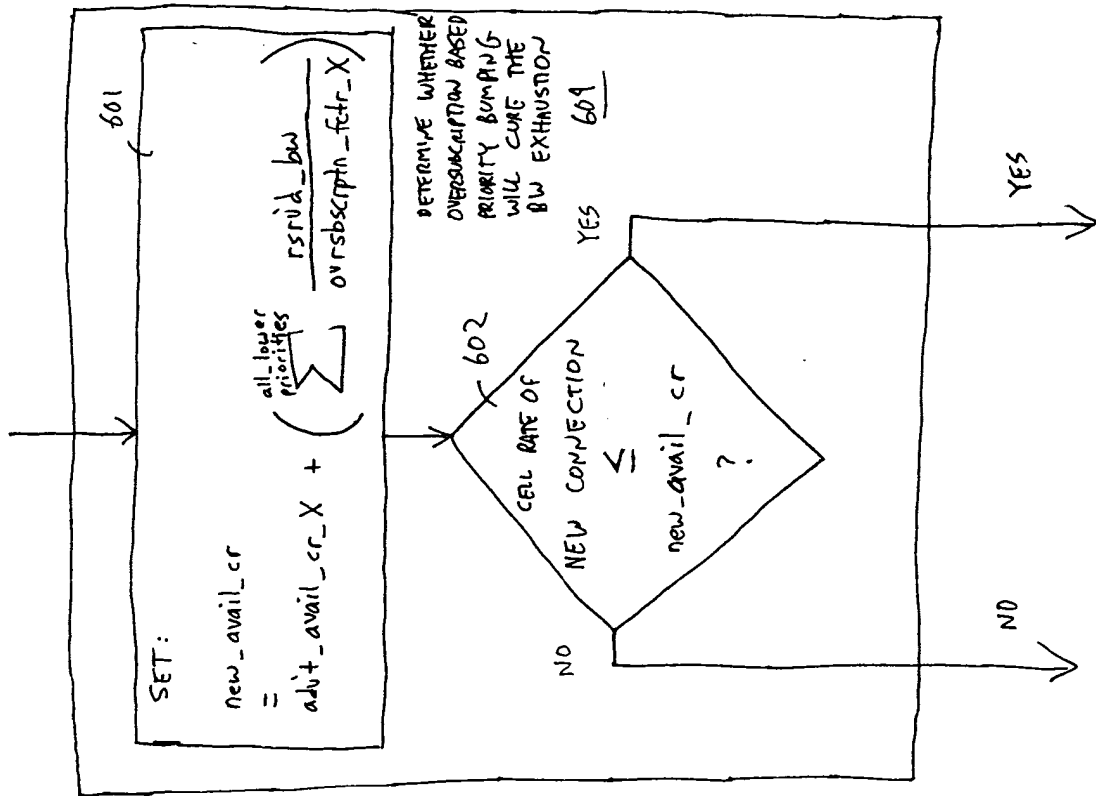 601
SET:
new_avail_cr
=
advt_avail_cr_X + ( all_lower priorities Σ rsrvd_bw / ovrsbscrptn_fctr_X )
DETERMINE WHETHER
OVERSUBSCRIPTION BASED
PRIORITY BUMPING
WILL CURE THE
BW EXHAUSTION
604
602
CELL RATE OF
NEW CONNECTION
≤
new_avail_cr
?
YES
NO
YES
NO